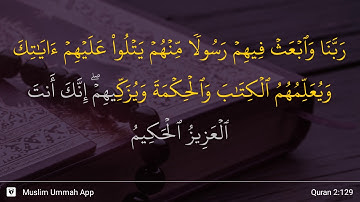 رَبَّنَا وَٱبْعَثْ فِيهِمْ رَسُولًا مِّنْهُمْ يَتْلُوا۟ عَلَيْهِمْ ءَايَـٰتِكَ
وَيُعَلِّمُهُمُ ٱلْكِتَـٰبَ وَٱلْحِكْمَةَ وَيُزَكِّيهِمْ ۚ إِنَّكَ أَنتَ
ٱلْعَزِيزُ ٱلْحَكِيمُ
Muslim Ummah App
Quran 2:129